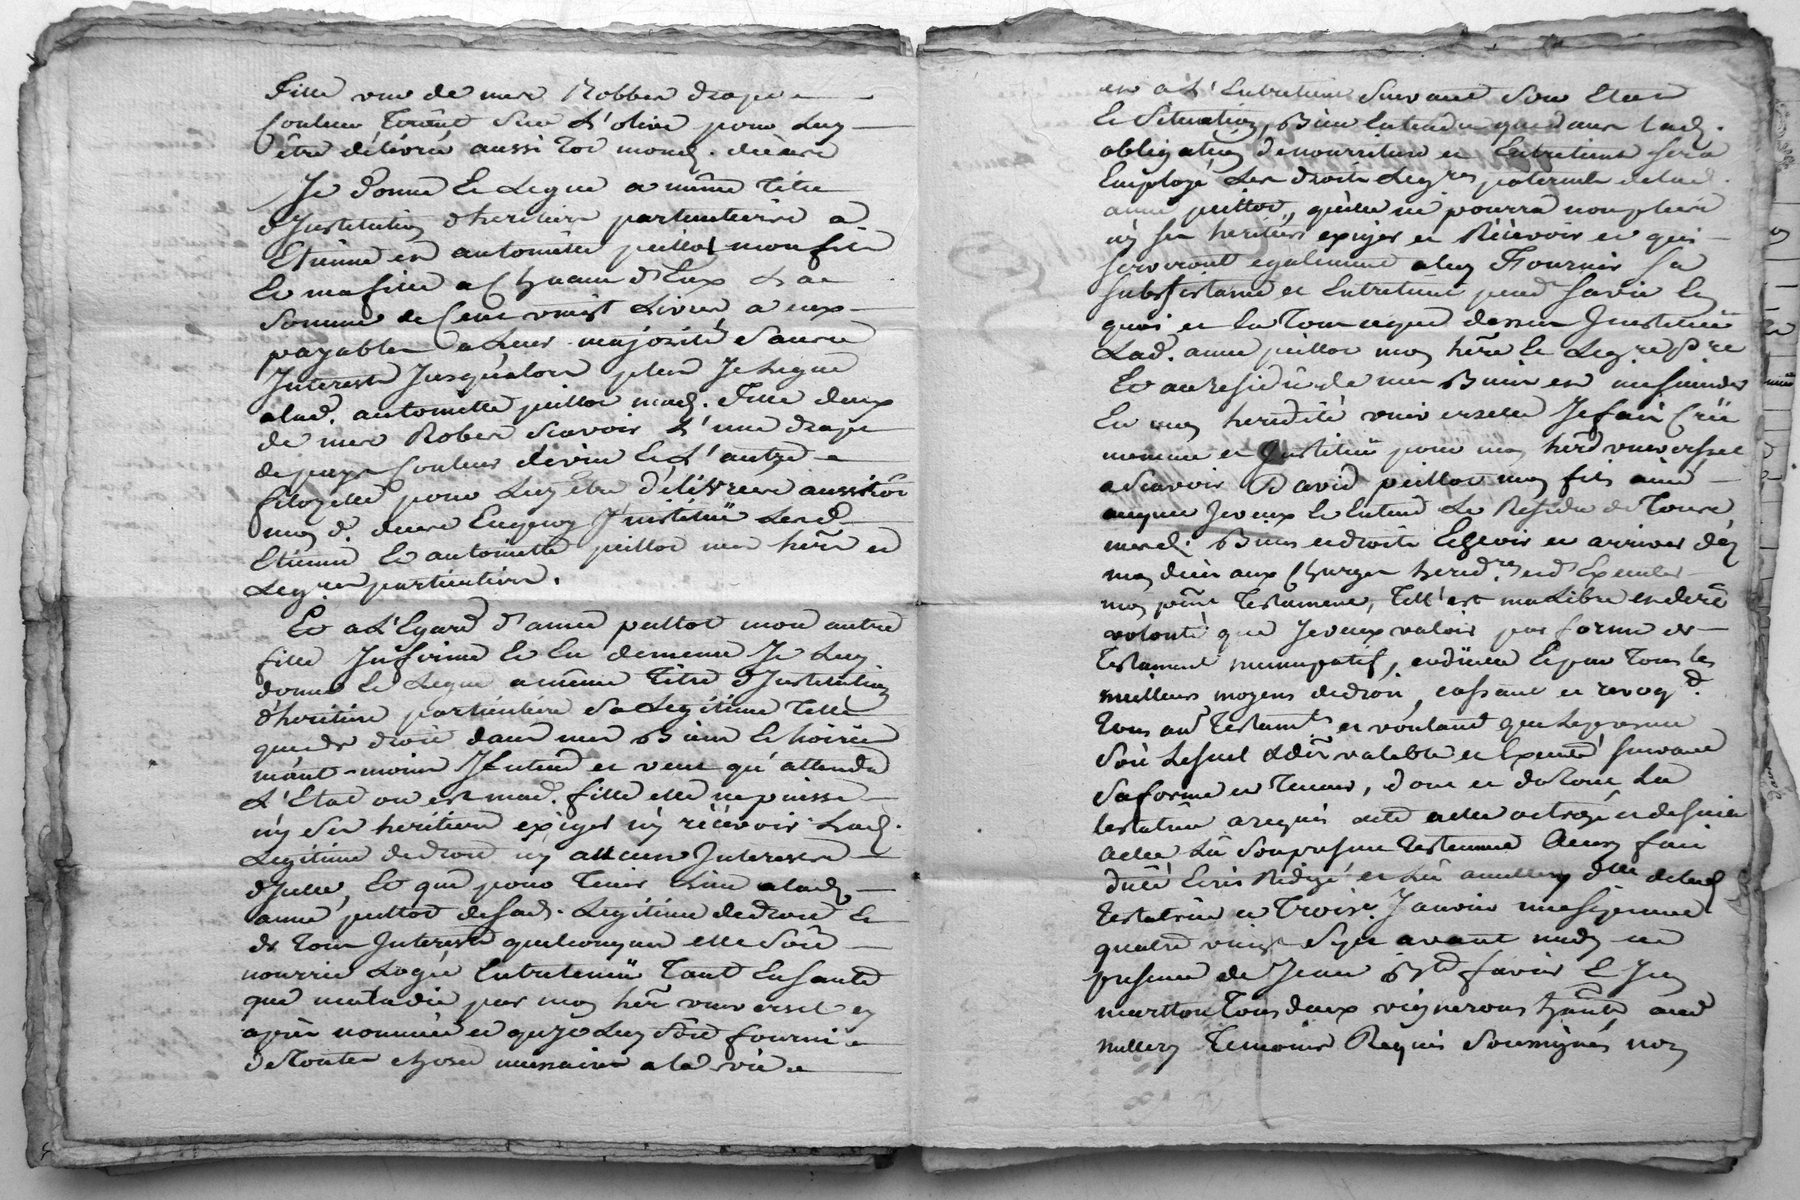 fille une de mes Robbes drap
Couleur Tirant sur L'olive pour Luy
être délivrée aussi Tot mond. deces
Je donne & Legue a même Titre
d'Institution d'heritiers particuliers a
Etienne et antoinette peillot mon fils
& ma fille a Chacun d'Eux La
Somme de Cent vingt Livres a eux
payable a Leur majorité Sans
Interests Jusqu'alors plus Je Legue
alad. antoinette peillot mad. fille deux
de mes Robes Scavoir L'une drap
de pays Couleur & L'autre
pour Luy être délivrées aussitôt
mon d. deces Enquoy J'institüe Lesd.
Etienne & antoinette peillot mes hers et
Legres particuliers.
Et a L'Egard d'anne peillot mon autre
fille Infirme & En demence Je Luy
donne & Legue a même Titre d'Institution
d'heritiere particuliere Sa Legitime Telle
que de droit dans mes Biens & hoirie
néant-moins J'Entend et veut qu'attendu
L'Etat ou est mad. fille elle ne puisse
ny Ses heritiers exiger ny récévoir Lad.
Legitime de droit ny aucuns Interests
d'Icelle, Et que pour Tenir Lieu alad.
anne peillot de Sad. Legitime de droit &
de Tous Interests quelconques elle Soit
nourrie Logée Entretenüe Tant En Santé
que maladie par mon her universel cy
après nommé et qu'Il Luy Soit fourni
de Toutes choses necessaires a la vie
et a L'Entretient Suivant Son Etat
& Situation, Bien Entendu que dans Lad.
obligation de nourriture et Entretient Sera
Employé Les droits Legres paternels de lad.
anne peillot, qu'elle ne pourra non plus
ny Ses heritiers exiger et Récevoir et qui
Serviront egalement a luy Fournir Sa
Subsistance et Entretient pend. Sa vie En
quoi et En Tout ce que dessus J'institüe
Lad. anne peillot mon here & Legre pre
Et au residû de mes Biens et
En mon heredité universelle Je fais Crée
nomme et Institüe pour mon herd universel
a Scavoir David peillot mon fils ainé
auquel Je veux & Entend Le Residu de Tous
mesd. Biens et droits Echeoir et arriver dès
mon deces aux Charges heredres et d'Executer
mon pnt Testament, Tell'est ma Libre et derre
volonté que Je veux valoir par forme de
Testament nuncupatif, codicille & par Tous les
meilleurs moyens de droit, cassant et revoqt
Tous aut Testamts et voulant que Le present
Soit Le Seul valable et Executé Suivant
Sa forme et Teneur, dont et du Tout La
testatrice a requis acte a elle octroyé et depuis
a elle Lû Son present testament
Ecrit Rédigé et Lû a millery de lad.
testatrice Le Trois Janvier mil Sept cent
quatre vingt Sept avant midy en
presence de Jean Bte favier & Jn
martton Tous deux vignerons hants aud
millery Temoins Requis Soussignés non